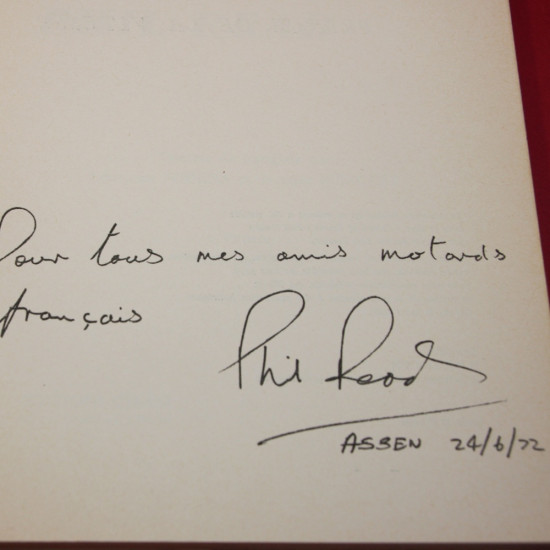 Pour tous mes amis motards
français
Phil Read
ASSEN 24/6/72